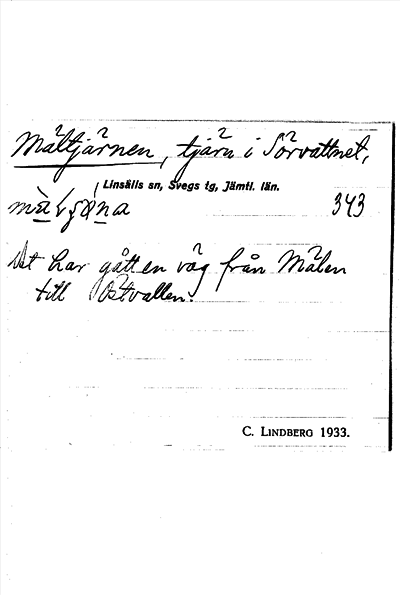 Måltjärnen, tjärn i Sörvattnet,
Linsälls sn, Svegs tg, Jämtl. län.
343
Det har gått en väg från Målen
till Östvallen.
C. LINDBERG 1933.